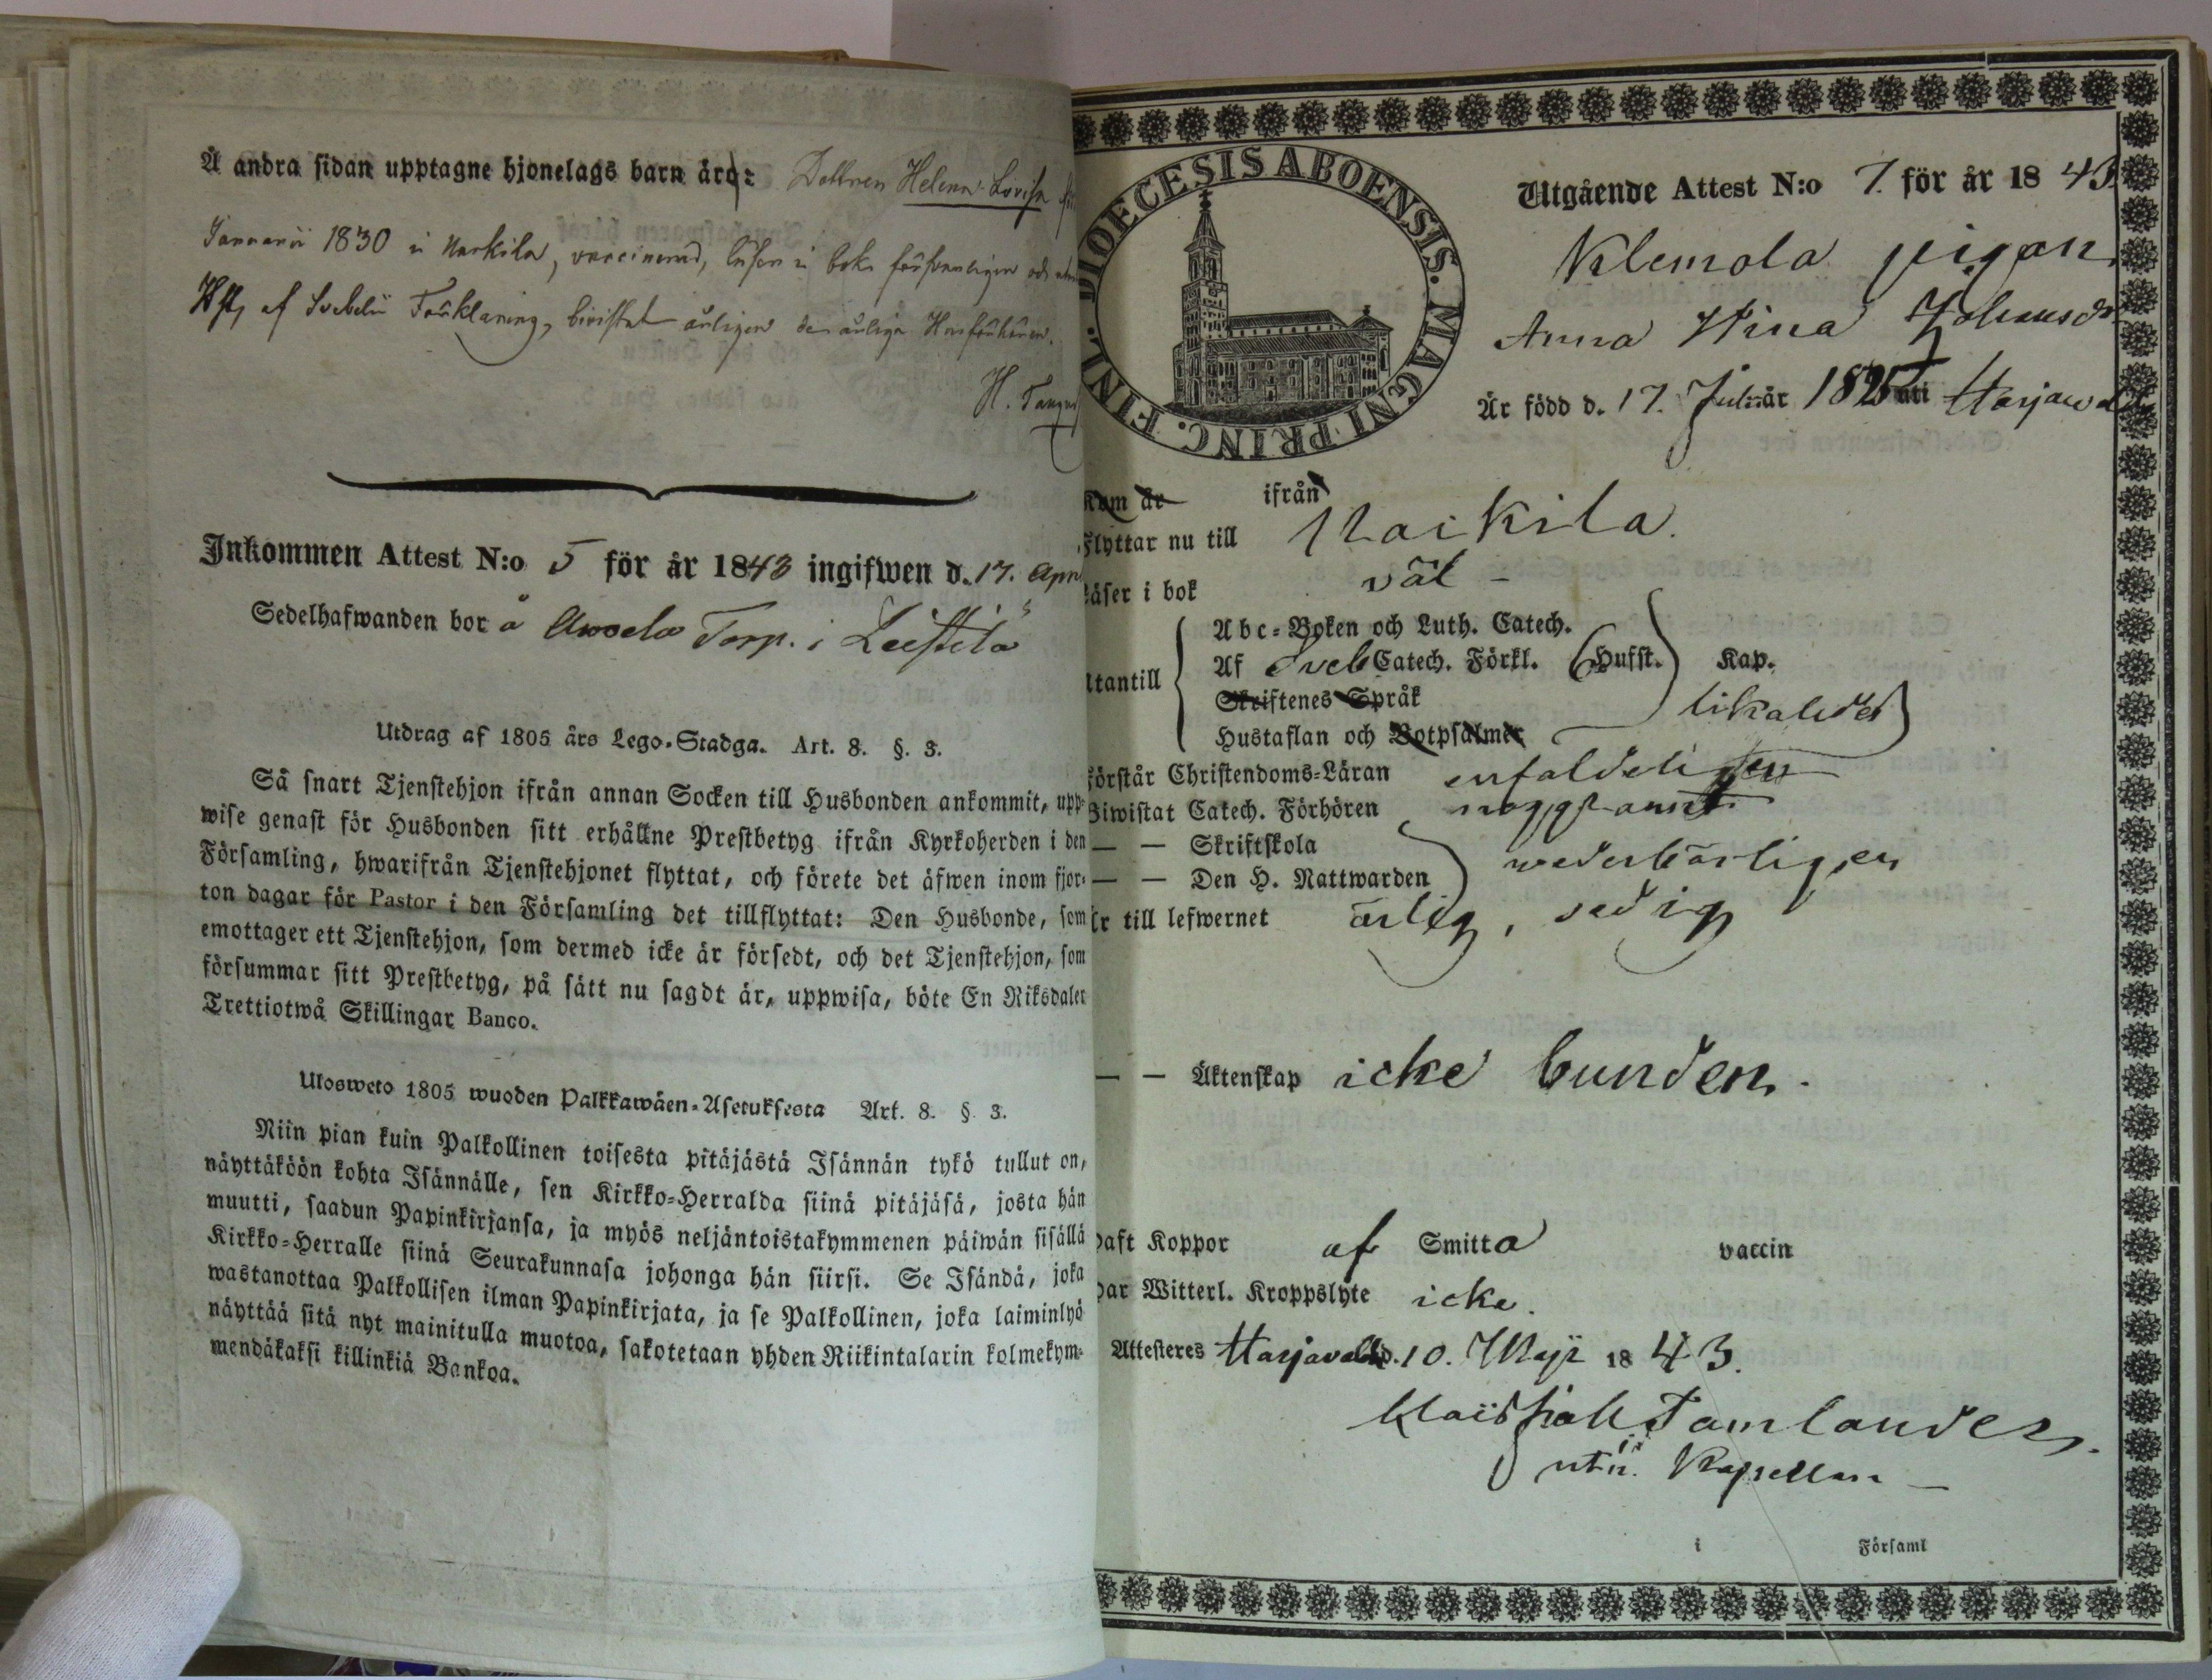 Å andra sidan upptagne hjonelags barn äro: Dottren Helena Lovisa
Januarii 1830 i Naskila, vaccinerad, läser i bok försvarligen och utan
Hfl, af Svebelii Förklaring, bivistat årligen de årliga Husförhören.
H. Tangu
Inkommen Attest N:o 5 för år 1843 ingifwen d. 17. Apri
Sedelhafwanden bor å Torp. i Leistilä
Utdrag af 1805 års Lego-Stadga. Art. 8. §. 3.
Så snart Tjenstehjon ifrån annan Socken till Husbonden ankommit, upp-
wise genast för Husbonden sitt erhållne Prestbetyg ifrån Kyrkoherden i den
Församling, hwarifrån Tjenstehjonet flyttat, och förete det äfwen inom fjor-
ton dagar för Pastor i den Församling det tillflyttat: Den Husbonde, som
emottager ett Tjenstehjon, som dermed icke är försedt, och det Tjenstehjon, som
försummar sitt Prestbetyg, på sätt nu sagdt är, uppwisa, böte En Riksdaler
Trettiotwå Skillingar Banco.
Ulosweto 1805 wuoden Palkkawäen-Asetuksesta Art. 8. §. 3.
Niin pian kuin Palkollinen toisesta pitäjästä Isännän tykö tullut on,
näyttäköön kohta Isännälle, sen Kirkko-Herralda siinä pitäjäsä, josta hän
muutti, saadun Papinkirjansa, ja myös neljäntoistakymmenen päiwän sisällä
Kirkko-Herralle siinä Seurakunnasa johonga hän siirsi. Se Isändä, joka
wastanottaa Palkollisen ilman Papinkirjata, ja se Palkollinen, joka laiminlyö
näyttää sitä nyt mainitulla muotoa, sakotetaan yhden Riikintalarin kolmekym-
mendäkaksi killinkiä Bankoa.
DIOECESIS ABOENSIS. MAGNI PRINC. FINL.
Utgående Attest N:o 7. för år 1843.
Klemola pigan
Anna Stina Johansdr
Är född d. 17. Juli är 1825 uti Harjawald
Kom är ifrån
Flyttar nu till Naikila.
Läser i bok väl -
Abc-Boken och Luth. Catech.
Utantill Af Sveb Catech. Förkl. (Hufst.) Kap.
Skriftenes Språk
Hustaflan och Botpsalmer likaledes
Förstår Christendoms-Läran enfaldeligen
Biwistat Catech. Förhören noggrannt
— — Skriftskola
— — Den H. Nattwarden wederbörligen
Är till lefwernet ärlig, sedig
— — Äktenskap icke bunden.
Haft Koppor af Smitta vaccin
Har Witterl. Kroppslyte icke.
Attesteres Harjavald d. 10. Maji 1843.
Tamlander.
Kapellan —
i Församl